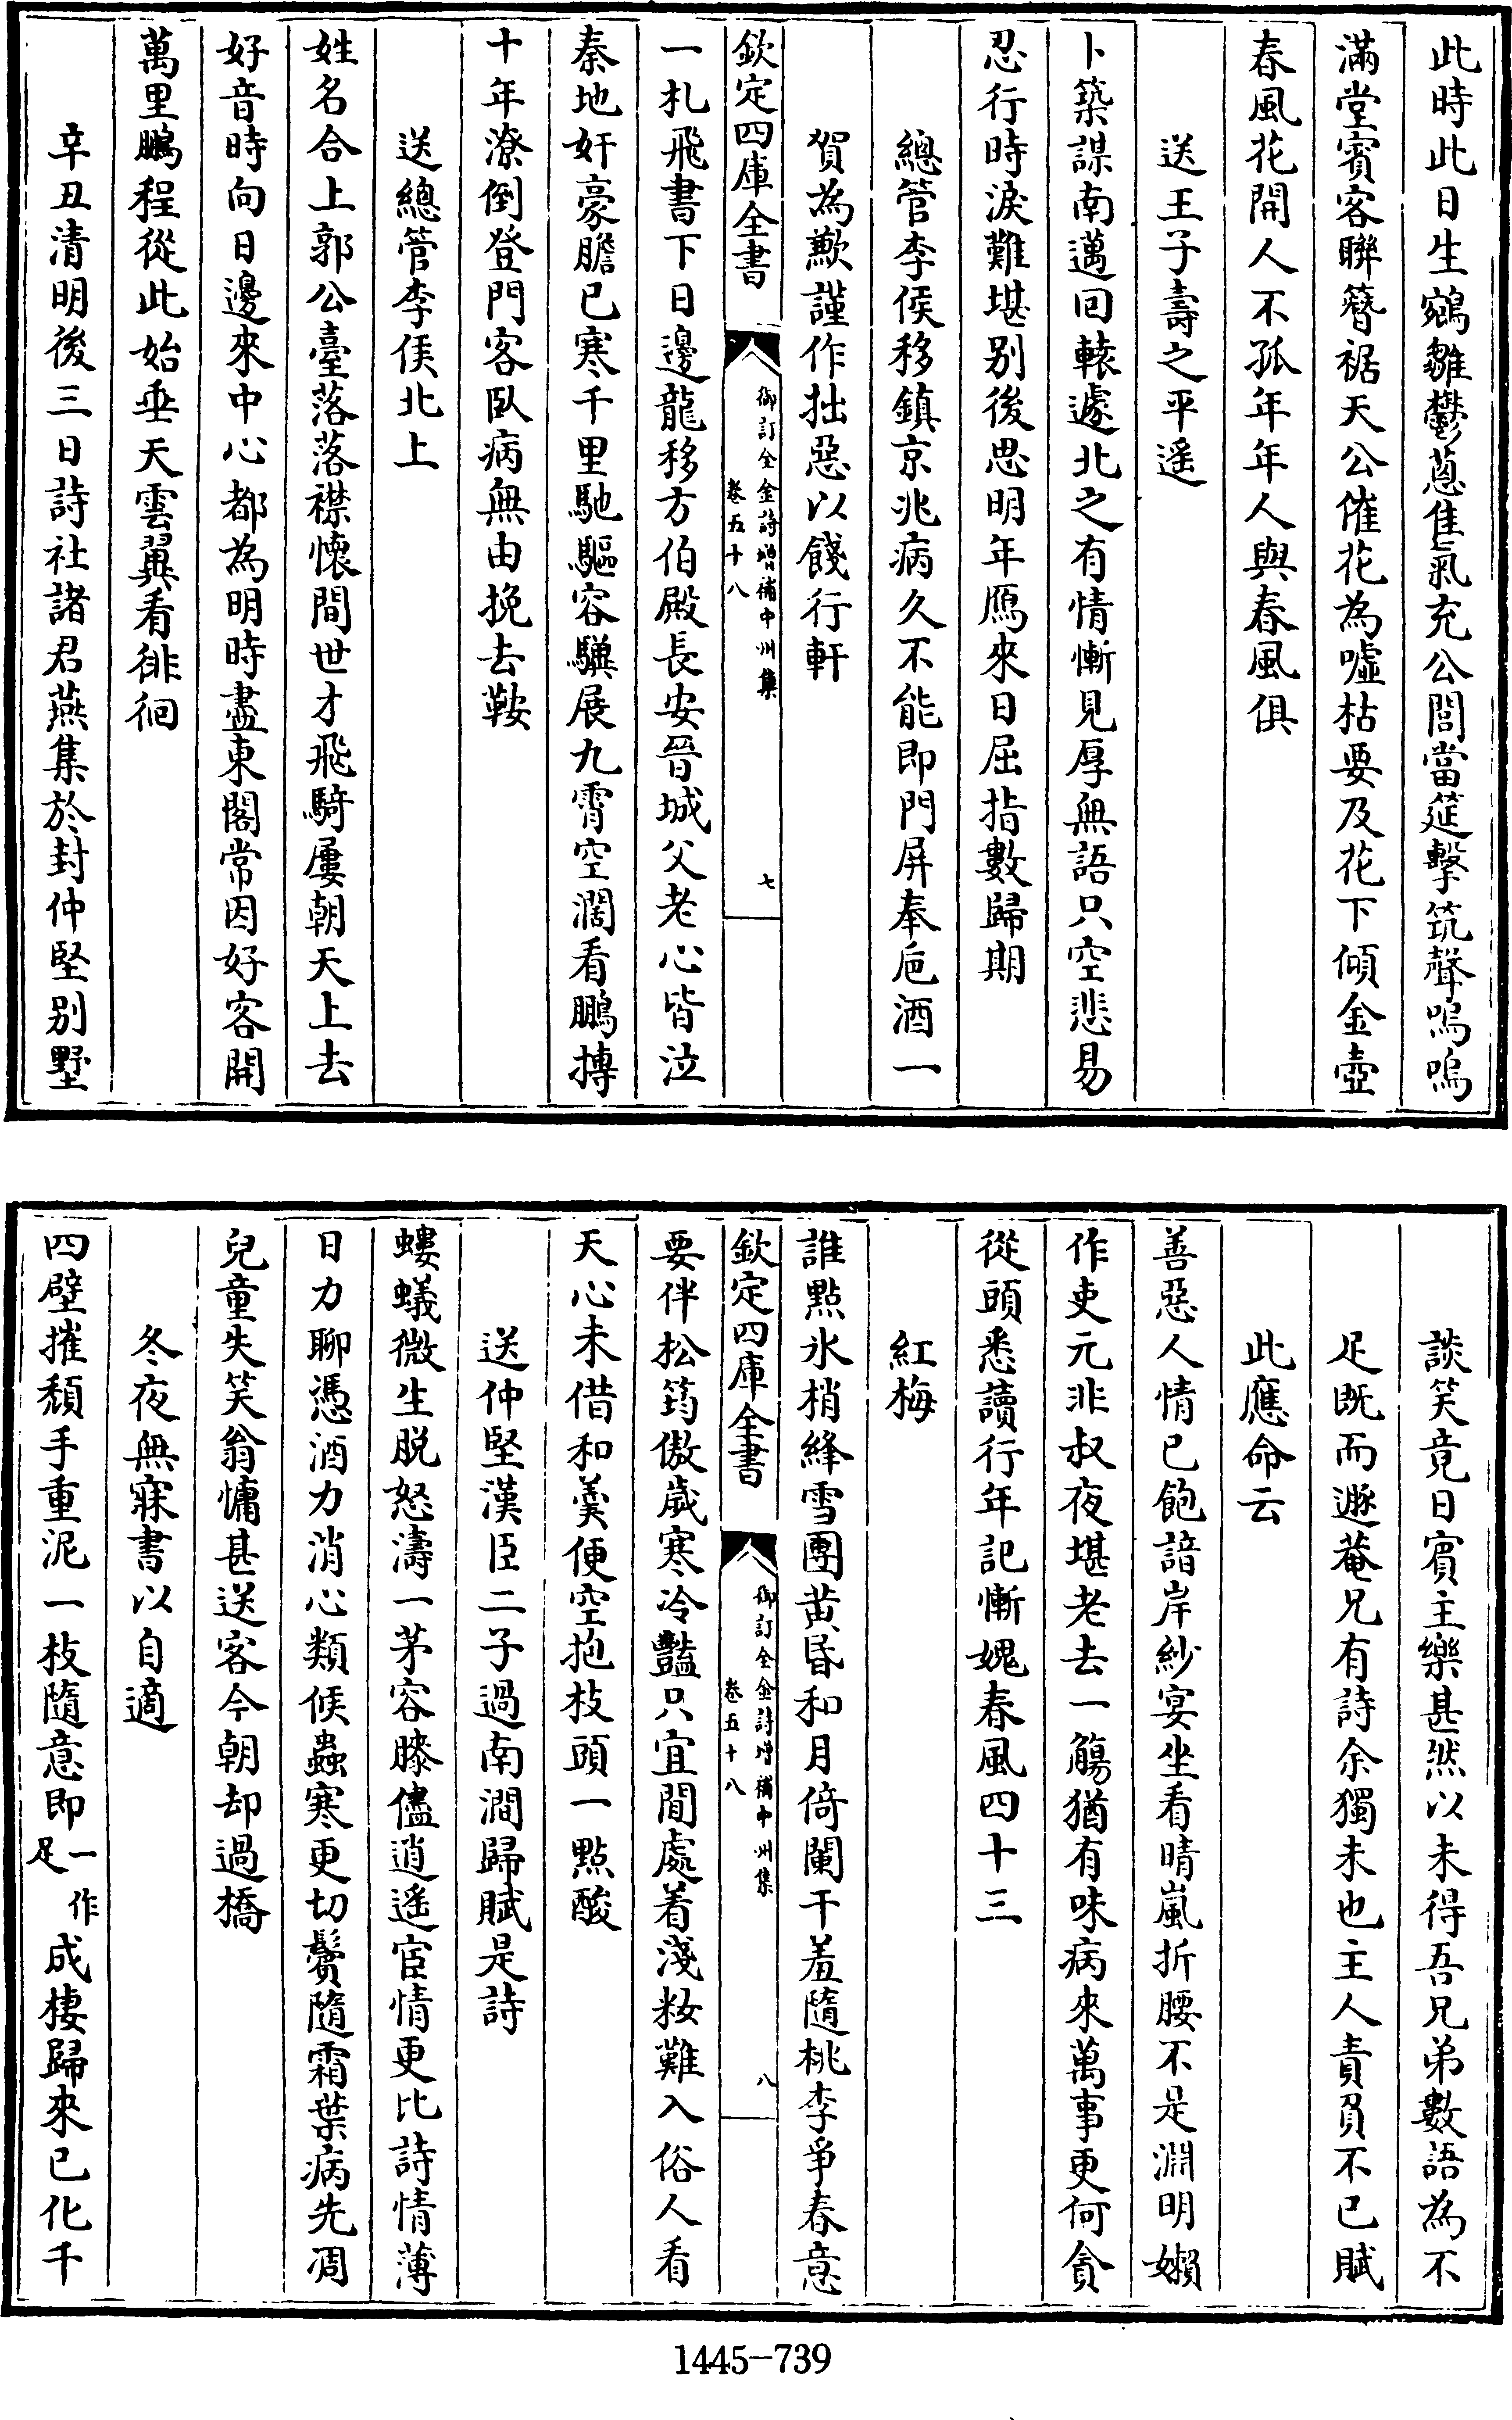 此時此日生鵷雛鬱蔥佳氣充公閭當筵擊筑聲嗚嗚
滿堂賓客聯簪裾天公催花為噓枯要及花下傾金壺
春風花開人不孤年年人與春風俱
送王子壽之平遥
卜築謀南邁回轅遽北之有情慚見厚無語只空悲易
忍行時淚難堪别後思明年鴈來日屈指數歸期
總管李侯移鎮京兆病久不能即門屏奉巵酒一
賀為歉謹作拙惡以餞行軒
欽定四庫全書
御訂全金詩增補中州集
卷五十八
七
一札飛書下日邊龍移方伯殿長安晉城父老心皆泣
秦地奸豪膽已寒千里馳驅容驥展九霄空濶看鵬摶
十年潦倒登門客臥病無由挽去鞍
送總管李侯北上
姓名合上郭公臺落落襟懷間世才飛騎屢朝天上去
好音時向日邊來中心都為明時盡東閣常因好客開
萬里鵬程從此始垂天雲翼看徘徊
辛丑清明後三日詩社諸君燕集於封仲堅别墅
談笑竟日賓主樂甚然以未得吾兄弟數語為不
足既而遯菴兄有詩余獨未也主人責負不已賦
此應命云
善惡人情已飽諳岸紗宴坐看晴嵐折腰不是淵明嬾
作吏元非叔夜堪老去一觴猶有味病來萬事更何貪
從頭悉讀行年記慚媿春風四十三
紅梅
誰點氷梢絳雪團黄昏和月倚闌干羞隨桃李爭春意
欽定四庫全書
御訂全金詩增補中州集
卷五十八
八
要伴松筠傲歲寒冷豔只宜閒處着淺粧難入俗人看
天心未借和羹便空抱枝頭一點酸
送仲堅漢臣二子過南澗歸賦是詩
螻蟻微生脱怒濤一茅容膝儘逍遥宦情更比詩情薄
日力聊憑酒力消心類候蟲寒更切鬢隨霜葉病先凋
兒童失笑翁慵甚送客今朝却過橋
冬夜無寐書以自適
四壁摧頹手重泥一枝隨意即一作足成棲歸來已化千
1445-739